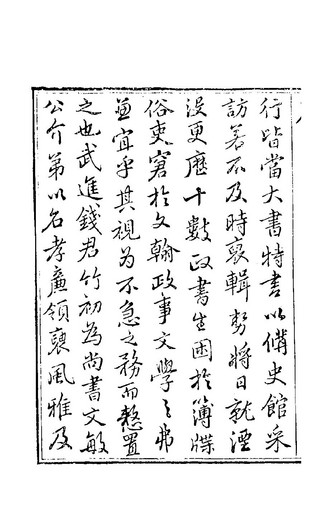 行皆當大書特書以備史館采
訪著不及時裒輯勢將日就湮
沒更歷十數政書生困於簿牒
俗吏窘於文翰政事文學之弗
並宜乎其視為不急之務而憗置
之也武進錢君竹初為尚書文敏
公介第以名孝廉領襄風雅及